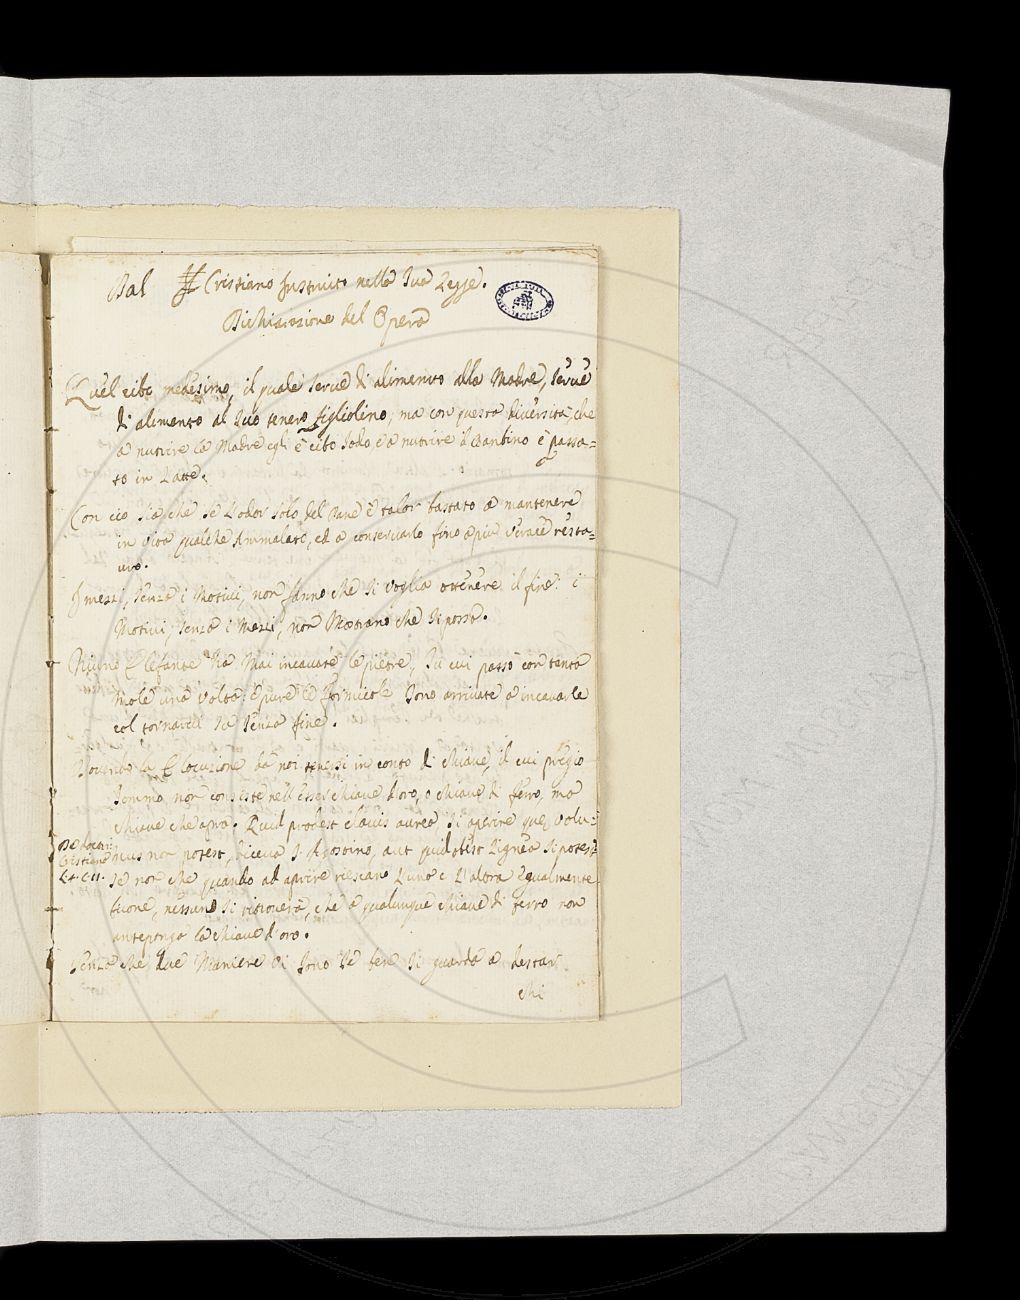 Dal Cristiano Instruito nella Sua Legge.
Dichiarazione del Opera
Quel cibo medesimo, il quale serve di alimento alla Madre, serve
di alimento al suo tenero figliolino, ma con questa diversità, che
a nutrire la Madre egli è cibo sodo, e a nutrire il Banbino è passa=
to in Latte.
Con ciò sia che se l'odor solo del Pane è talor bastato a mantenere
in vita qualche Ammalato, ed a conservarlo fino a più verace resta=
uro.
I mezzi, senza i Motivi, non fanno che si voglia ottenere il fine: i
Motivi, senza i Mezzi, non Mostrano che si possa.
Niuno Elefante ha Mai incavate le pietre, su cui passò con tanta
Mole una volta: e pure le Formicole sono arrivate a incavarle
col tornarvi su senza fine.
Dovendo la Elocuzione da noi tenersi in conto di chiave, il cui pregio
sommo non consiste nell'esser chiave d'oro, o chiave di ferro, ma
chiave che apra. Quid prodest clavis aurea, si aperire que volu=
De Doctri:
Cristiana
L.4. C.11.
mus non potest, diceva S. Agostino, aut quid obest Lignea si potest
se non che quando ad aprire riescano l'una e l'altra egualmente
bene, nessuno si ritroverà, che a qualunque chiave di ferro non
anteponga la chiave d'oro.
Senza che due Maniere vi sono se ben si guarda a destar
chi